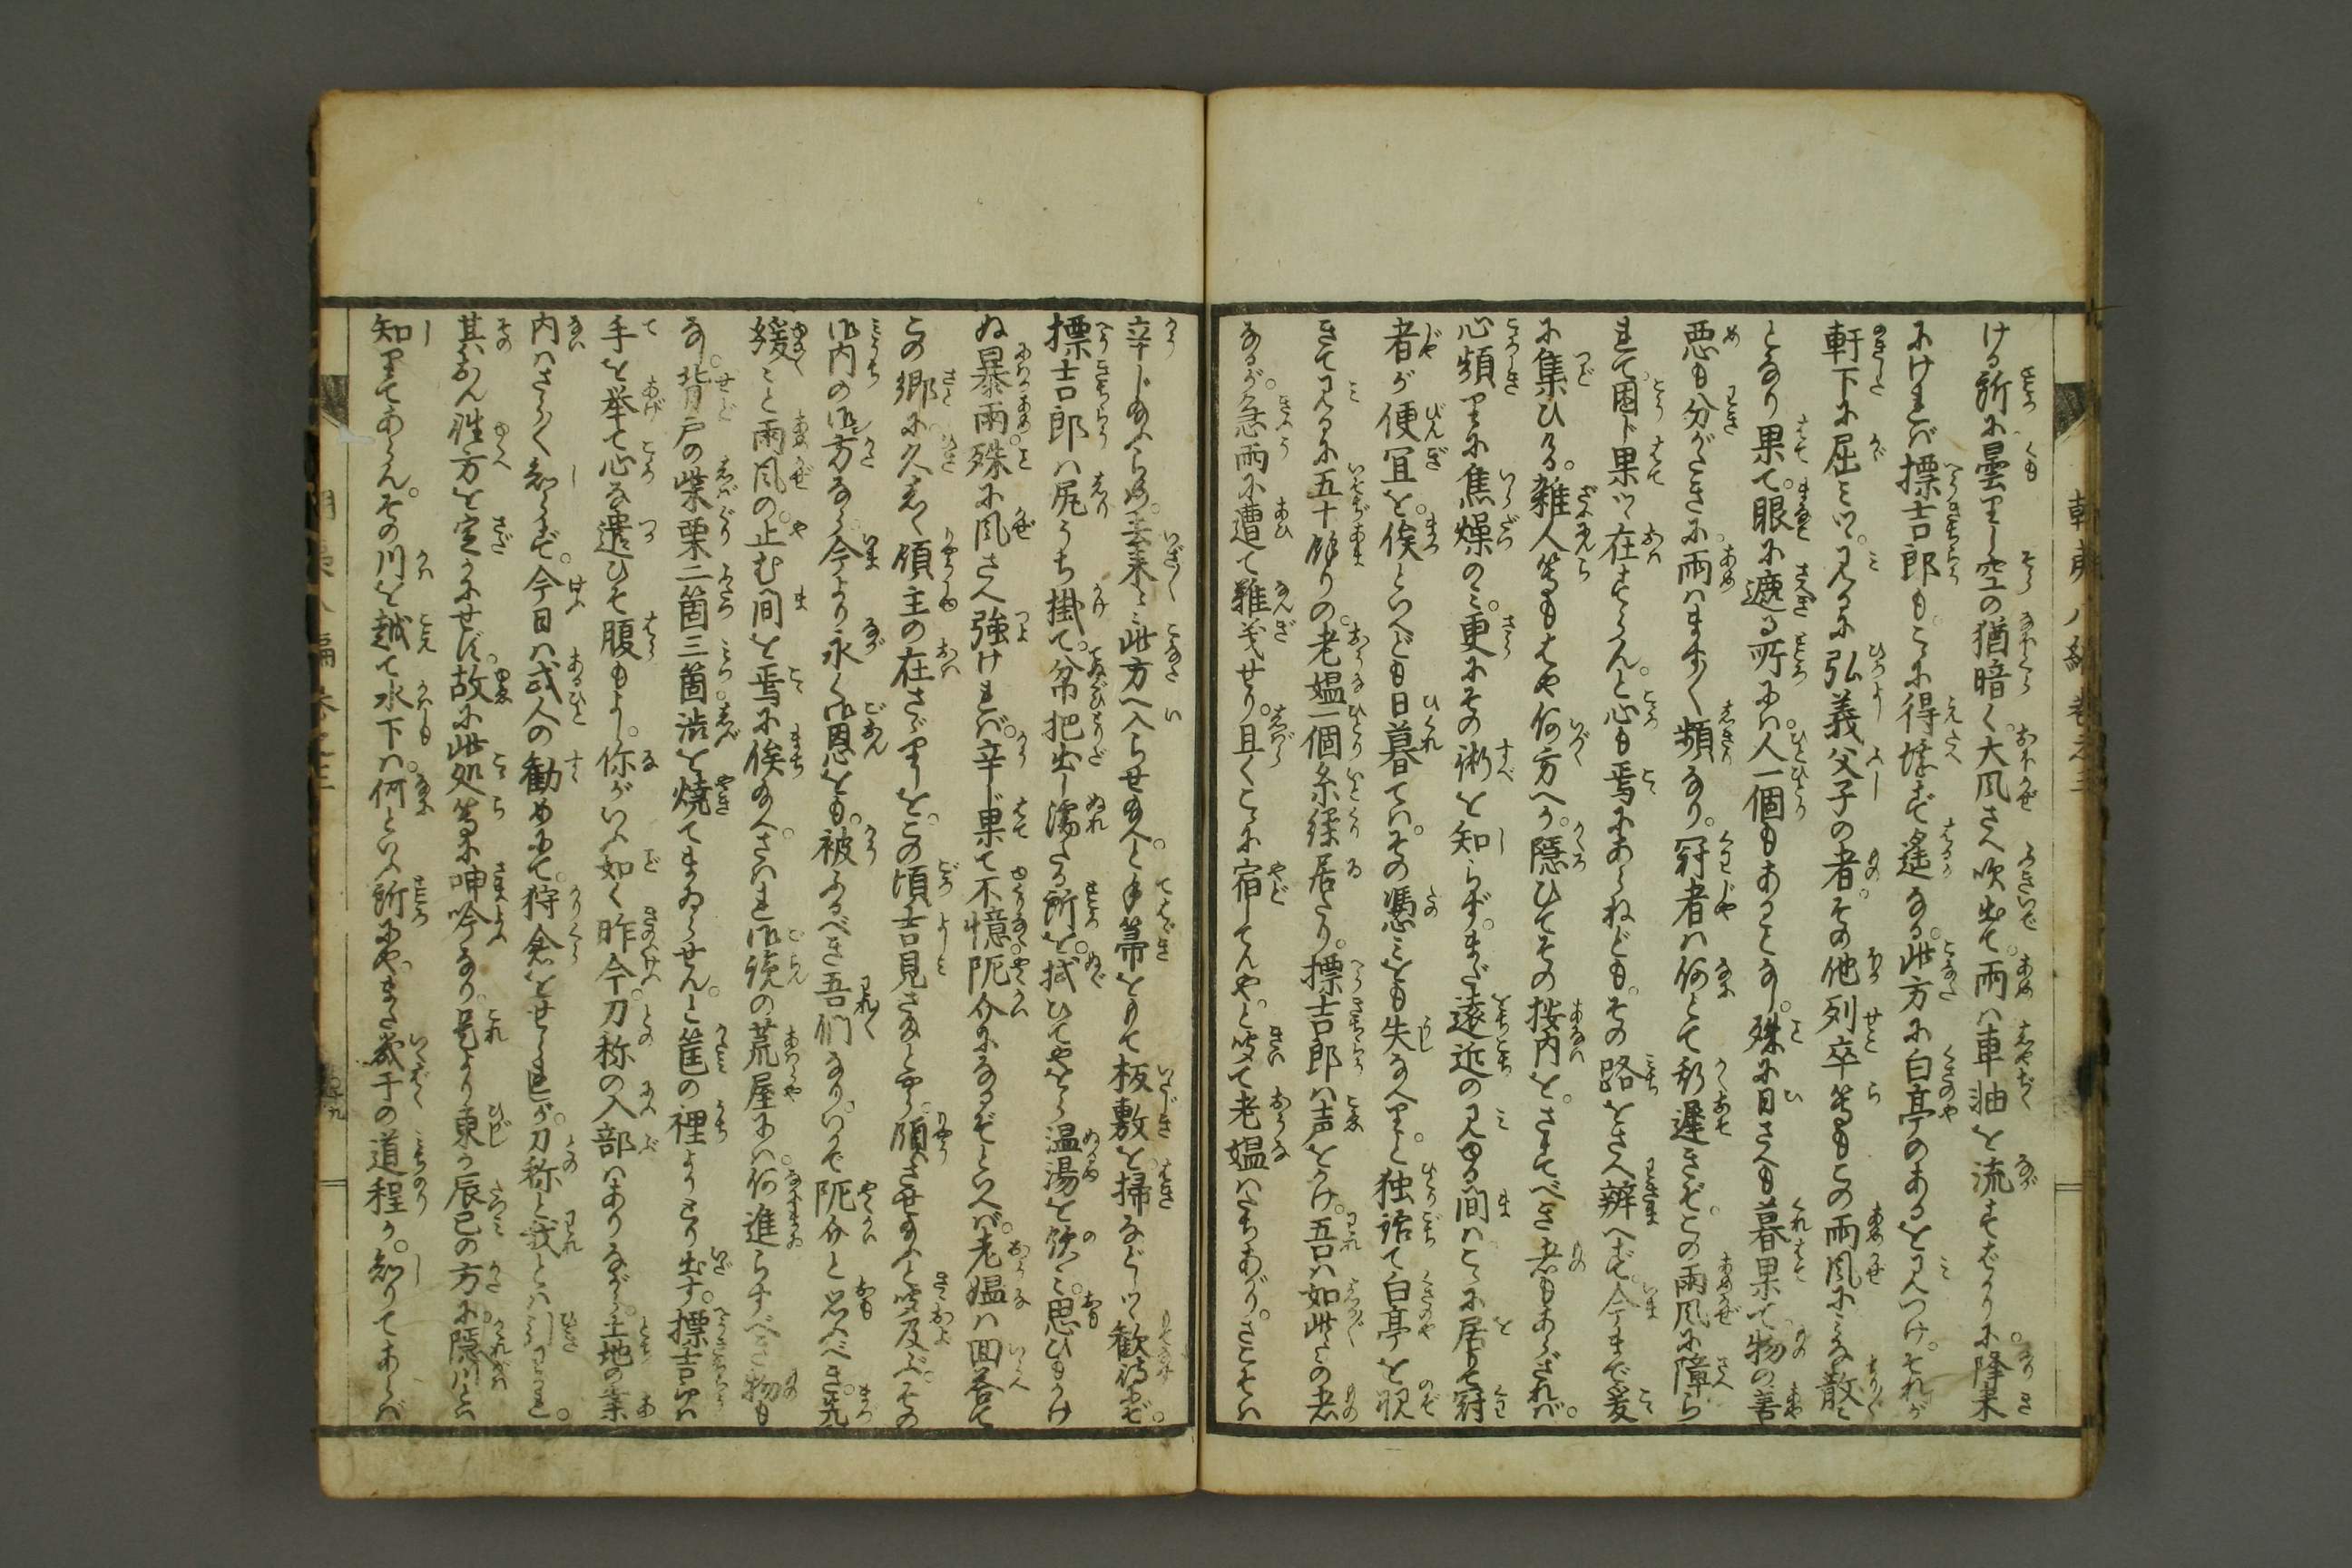 ける所に曇りし空の猶暗く大風さへ吹出て。雨は車軸を流すばかりに。降来
にければ標吉郎もこゝに得堪ず遙なる。此方に白亭のあるを見つけ。それが
軒下に屈みつ。見るに弘義父子の者。その他列卒等もこの雨風にみな散々
となり果て。眼に遮る所には。人一個もあることなし。殊に日さへも暮果て物の善
悪も分がたきに。雨はます〳〵頻なり。冠者は何とて斯遅きぞこの雨風に障ら
れて。困じ果つ在すらん。と心も焉にあらねども。その路をさへ辨へず。今まで爰
に集ひる。雑人等もはや何方へか。隠ひてその按内を。さすべき者もあらざれば。
心頻りに焦燥のみ。更にその術を知らず。まだ遠近の見ゆる間はこゝに居りて冠
者が便宜を。俟といへども日暮ては。その憑みをも失なへり。と独語て白亭を覘
きて見るに五十餘りの。老媼一個糸繰居たり。標吉郎は声をかけ。吾は如此々の者
なるが。急雨に遭て難義せり。且くこゝに宿してんや。と聞て老媼はたちあがり。さこそは
辛じ給ふらめ。去来々此方へ入らせ給へ。と手箒をとりて板敷を掃などしつ歓待せば。
標吉郎は尻うち掛て。帛把出し濡たる所を。拭ひてやをら温湯を飲み。思ひもかけ
ぬ暴雨。殊に風さへ強ければ。辛じ果て不憶。阨介になるぞといへば。老媼は回答て
この郷に。久しく領主の在さゞりしを。この頃吉見さまとやら。領させ給ふと聞及ぶ。その
御内の御方なら。今より永く御恩をも。被ふるべき吾們なり。いかで阨介と思ふべき。先
緩々と雨風の。止む間を焉に俟給へ。さはれ御覧の荒屋には。何進らすべき物も
なし。背戸の柴栗二箇三箇。渋を焼てまゐらせん。と筐の裡よりとり出す。標吉郎は
手を挙て心な遣ひそ腹もよし。你がいふ如く昨今。刀称の入部はありながら。土地の案
内はさら〳〵知らず。今日は或人の勧めにて。狩倉をせられしが。刀称と我とは引わかれ。
其わん往方を定かにせず。故に此処等に呻吟なり。是より東か辰巳の方に。隠川とい
知りてあらん。その川を越て水下は。何といふ所にや。まだ幾千の道程か。知りてあらば